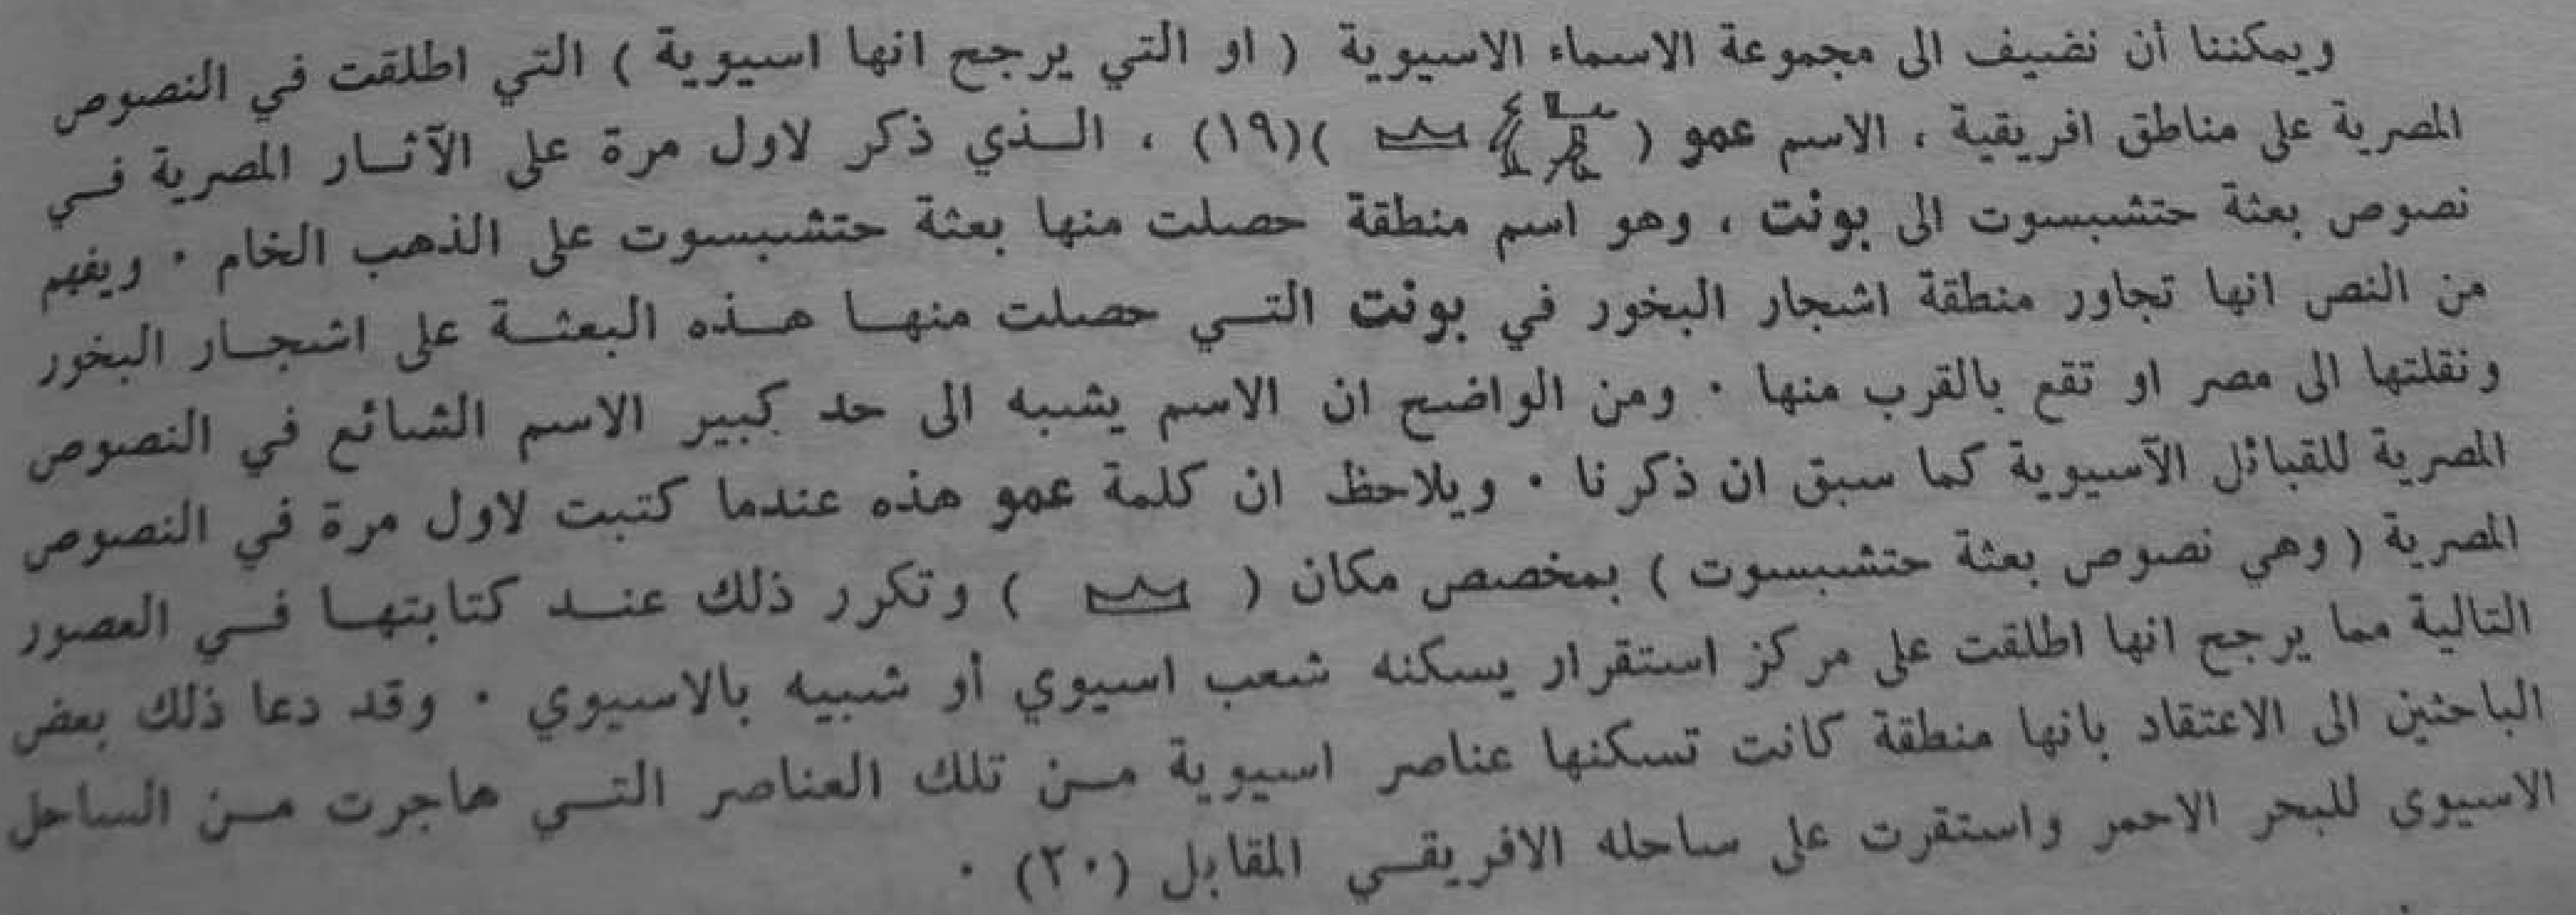 ويمكننا أن نضيف الى مجموعة الاسماء الاسيوية ( او التي يرجح انها اسيوية ) التي اطلقت في النصوص
المصرية على مناطق افريقية ، الاسم عمو ( )(١٩) ، الـذي ذكر لاول مرة على الآثـار المصرية فـي
نصوص بعثة حتشبسوت الى بونت ، وهو اسم منطقة حصلت منها بعثة حتشبسوت على الذهب الخام ٠ ويفهم
من النص انها تجاور منطقة اشجار البخور في بونت التـي حصلت منهـا هـذه البعثـة على اشجـار البخور
ونقلتها الى مصر او تقع بالقرب منها ٠ ومن الواضح ان الاسم يشبه الى حد كبير الاسم الشائع في النصوص
المصرية للقبائل الآسيوية كما سبق ان ذكرنا ٠ ويلاحظ ان كلمة عمو هذه عندما كتبت لاول مرة في النصوص
المصرية ( وهي نصوص بعثة حتشبسوت ) بمخصص مكان ( ) وتكرر ذلك عنـد كتابتهـا فـي العصور
التالية مما يرجح انها اطلقت على مركز استقرار يسكنه شعب اسيوي أو شبيه بالاسيوي ٠ وقد دعا ذلك بعض
الباحثين الى الاعتقاد بانها منطقة كانت تسكنها عناصر اسيوية مـن تلك العناصر التـي هاجرت مـن الساحل
الاسيوى للبحر الاحمر واستقرت على ساحله الافريقـي المقابل (٢٠) ٠